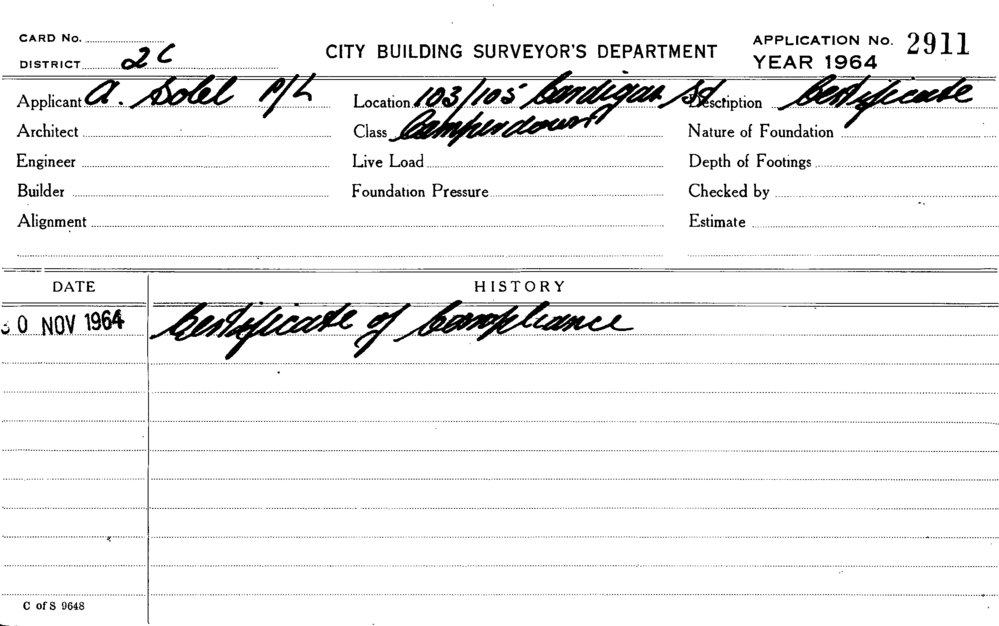 CARD No.
DISTRICT 2C
CITY BUILDING SURVEYOR'S DEPARTMENT
APPLICATION No. 2911
YEAR 1964
Applicant A. Solel P/L Location 103/105 Cardigan St Description Certificate
Architect Class Camperdown Nature of Foundation
Engineer Live Load Depth of Footings
Builder Foundation Pressure Checked by
Alignment Estimate
DATE HISTORY
30 NOV 1964 Certificate of Compliance
C of S 9648